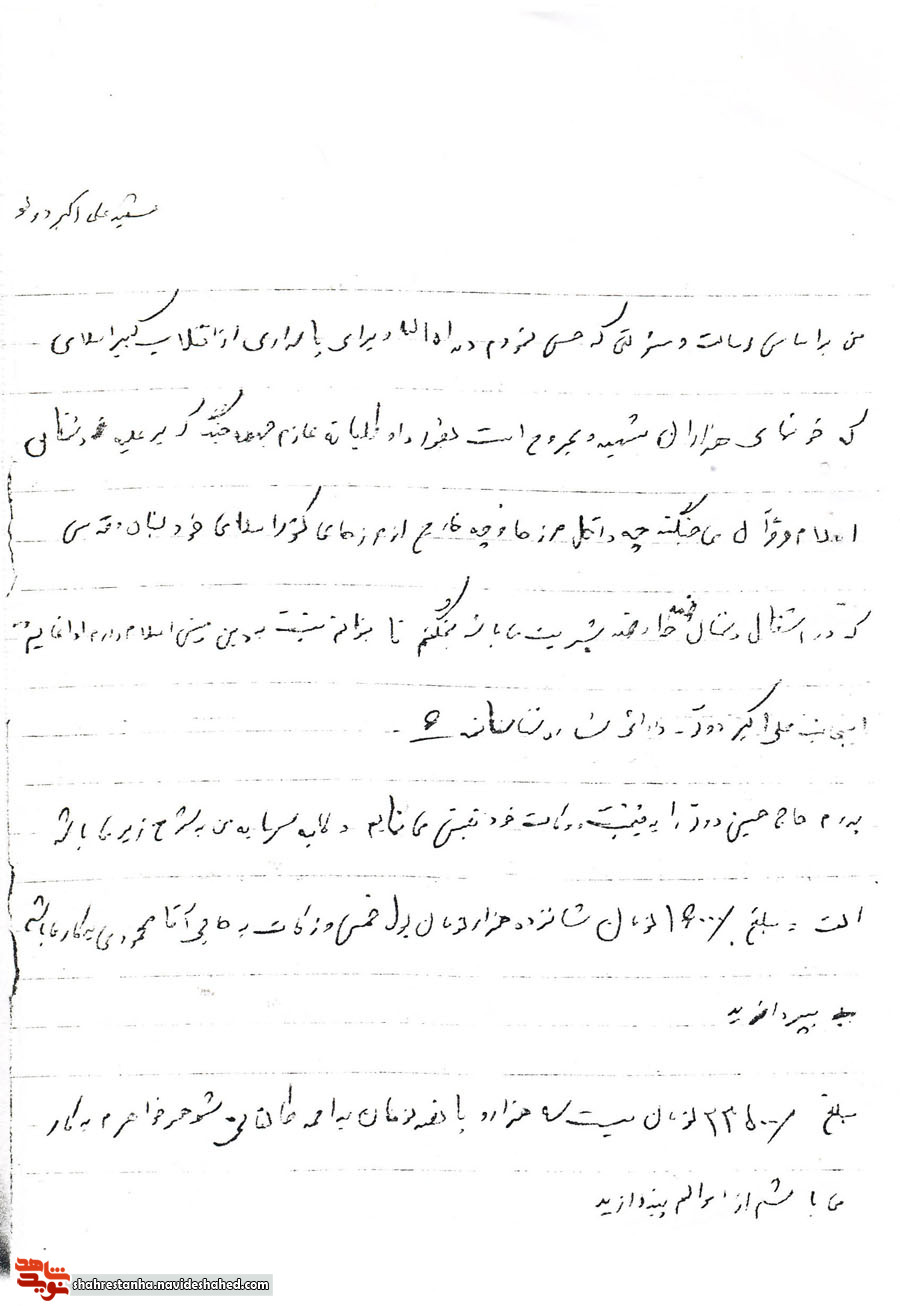 شهید علی اکبر دودانگه
من بر اساس رسالت و مسئولیتی که حس نمودم در راه الله و برای پاسداری از انقلاب کبیر اسلامی
که خونبهای هزاران شهید و مجروح است بطور داوطلبانه عازم جبهه جنگ که بر علیه دشمنان
اسلام و قرآن می جنگند چه داخل مرزها و چه خارج از مرزهای کشور اسلامی خود لبنان و قدس
که در اشغال دشمنان بشریت می باشد بجنگم تا بتوانم نسبت به دین مبین اسلام دارم ادا نمایم
اینجانب علی اکبر دارای شناسنامه ۶
پدرم حاج حسین را به وکالت خود تعیین می نمایم و کلیه سرمایه من به شرح زیر می باشد
الف - مبلغ ۱۶۰۰۰/ تومان شانزده هزار تومان پول خمس و زکات به حاجی آقا محمودی بدهکار می باشم
بپردازید
مبلغ ۲۳۵۰۰/ تومان بیست سه هزار و پانصد تومان به احمد طالقانی شوهر خواهرم بدهکار
می باشم از اموالم بپردازید
شاهد
نوید
shahrestanha.navideshahed.com